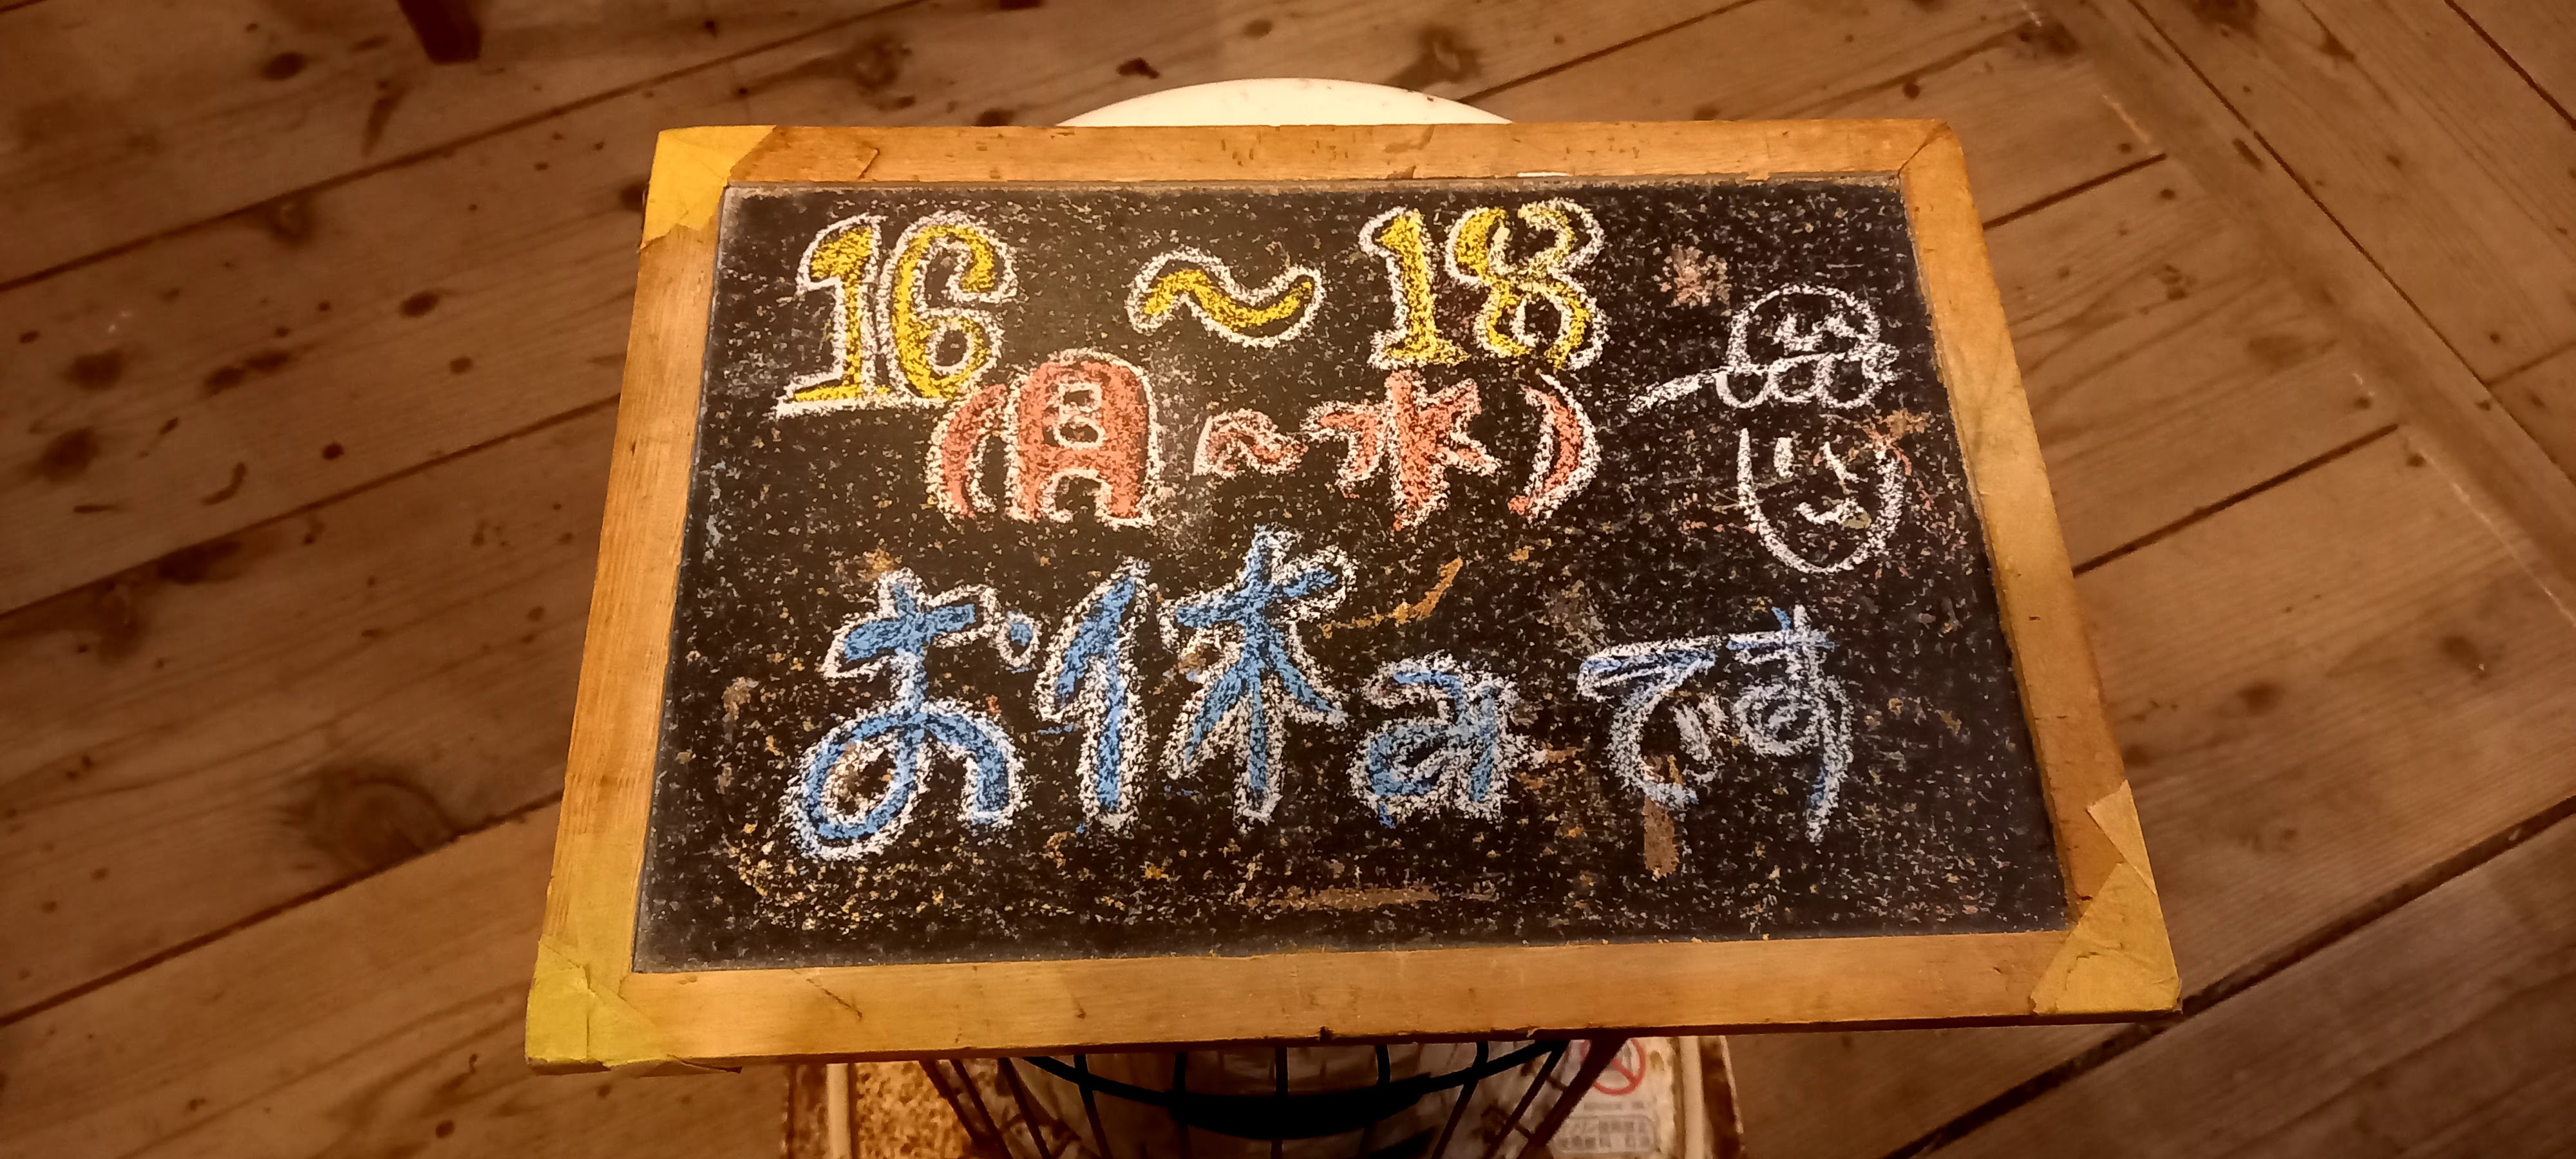 16 〜 18
(月〜水)
お休みです